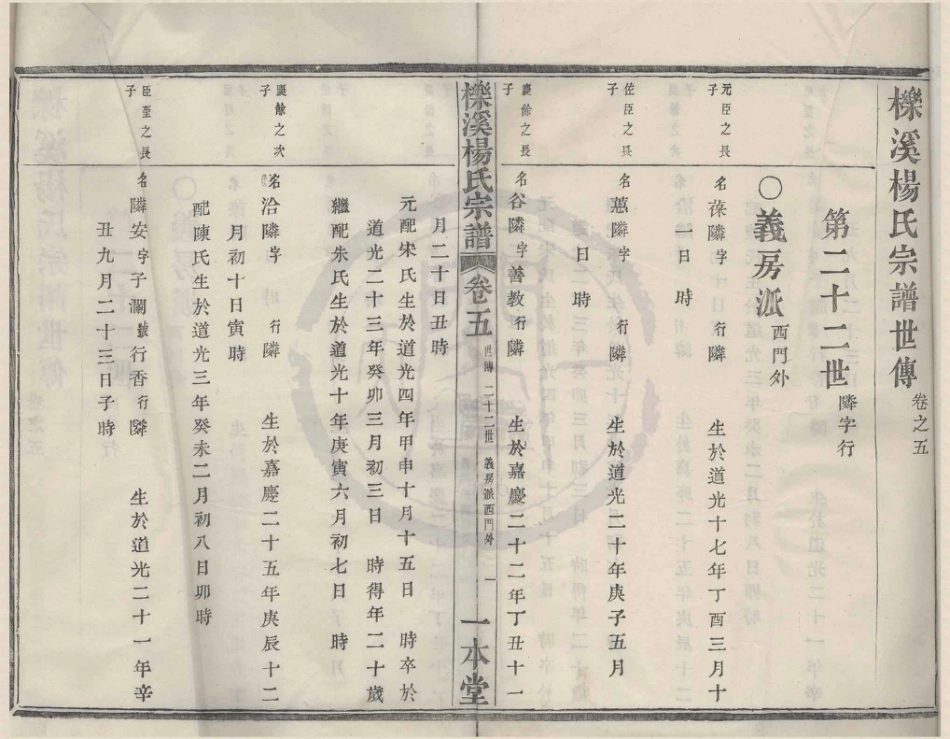 櫟溪楊氏宗譜世傳 卷之五
第二十二世 隣字行
○義房派 西門外
元臣之長子
名葆隣字 行隣 生於道光十七年丁酉三月十
一日 時
佐臣之長子
名蕙隣字 行隣 生於道光二十年庚子五月
日 時
慶餘之長子
名谷隣字善教行隣 生於嘉慶二十二年丁丑十一
櫟溪楊氏宗譜 卷五 世傳 二十二世 義房派西門外 一 一本堂
月二十日丑時
元配宋氏生於道光四年甲申十月十五日 時卒於
道光二十三年癸卯三月初三日 時得年二十歲
繼配朱氏生於道光十年庚寅六月初七日 時
慶餘之次子
名治隣字 行隣 生於嘉慶二十五年庚辰十二
月初十日寅時
配陳氏生於道光三年癸未二月初八日卯時
臣至之長子
名隣安字子瀾號行香行隣 生於道光二十一年辛
丑九月二十三日子時